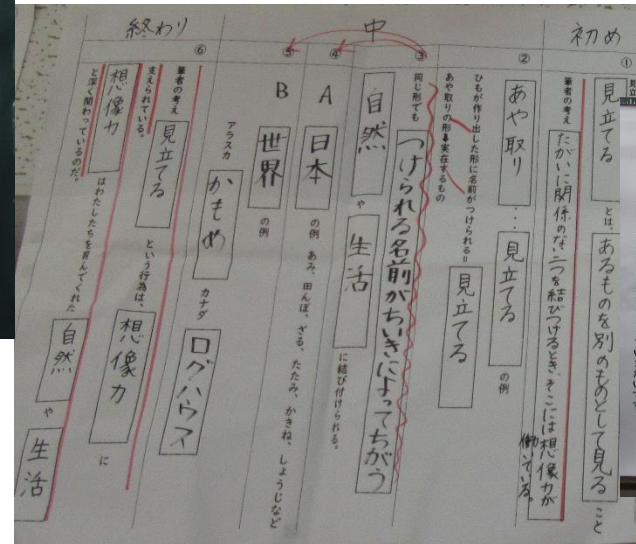 初め
①
見立てる とは、あるものを別のものとして見る こと
筆者の考え たがいに関係のない二つを結びつけるとき、そこには想像力が
働いている。
中
②
あや取り … 見立てる の例
ひもが作り出した形に名前がつけられる＝ 見立てる
あや取りの形 実在するもの
③
同じ形でも つけられる名前がちいきによってちがう
自然 や 生活 に結び付けられる。
④
A 日本 の例 あみ、田んぼ、ざる、たたみ、かきね、しょうじなど
⑤
B 世界 の例
アラスカ かもめ カナダ ログハウス
終わり
⑥
筆者の考え 見立てる という行為は、 想像力 に
支えられている。
想像力 はわたしたちを育んでくれた 自然 や 生活
と深く関わっているのだ。